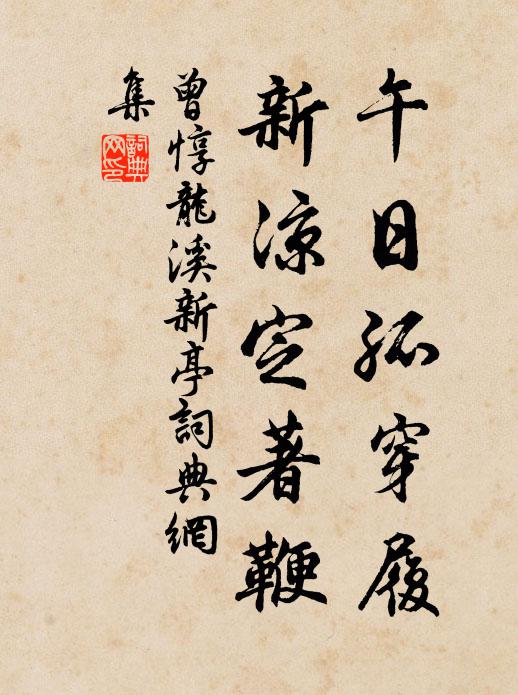 午日孤穿履
新凉定著鞭
曾惇龍溪新亭詞典網
集
詞典
网印